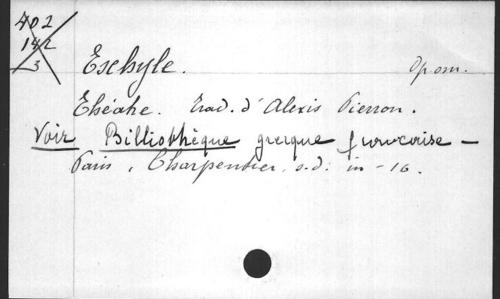 402
142
3
Eschyle. Op. om.
Théatre. Trad. d'Alexis Pierron.
Voir Billiothèque grecque francaise -
Paris, Charpentier, s.d. in-16.